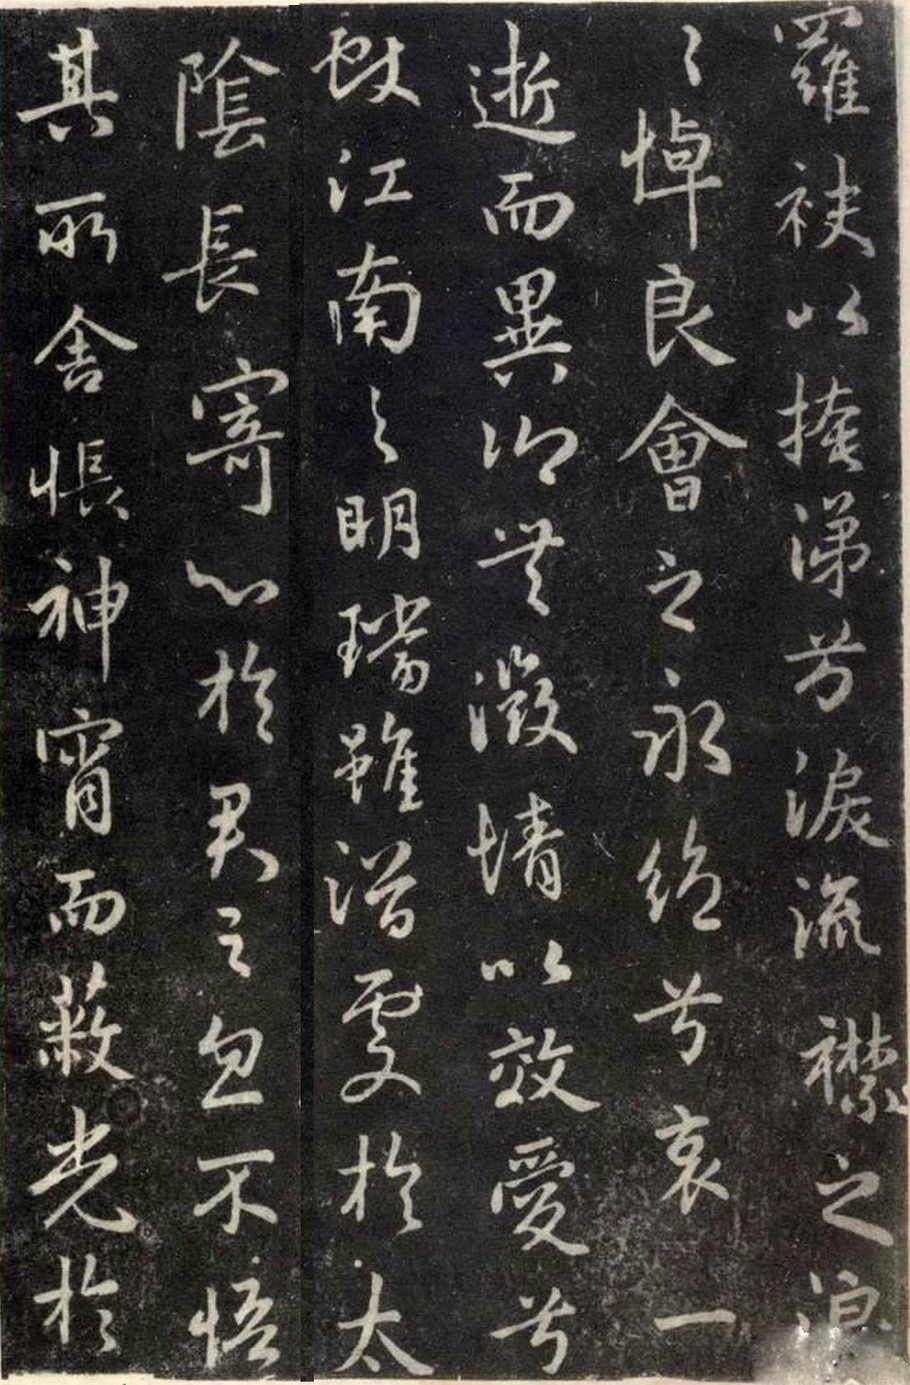 羅袂以掩涕兮淚流襟之浪
〻悼良會之永絕兮哀一
逝而異鄉無微情以效愛兮
獻江南之明璫雖潛處於太
陰長寄心於君之忽不悟
其所舍悵神宵而蔽光於